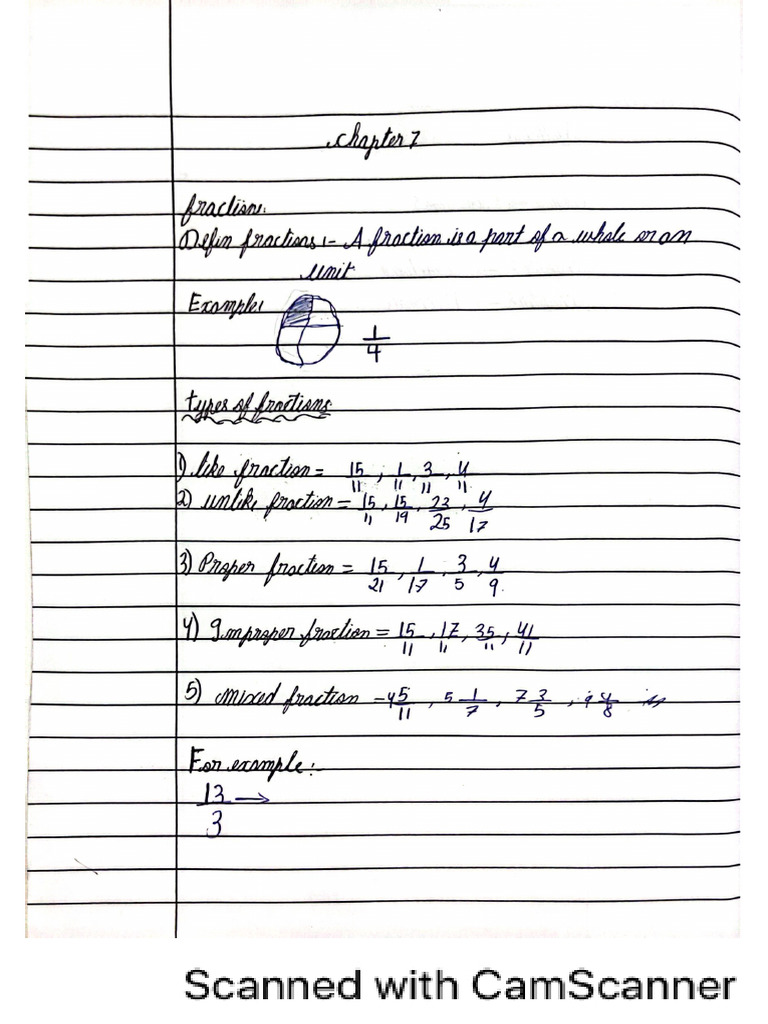 Chapter 7
fraction:
Defin fractions :- A fraction is a part of a whole or an
unit
Example:
1/4
types of fractions
1) like fraction = 15/11, 1/11, 3/11, 4/11
2) unlike fraction = 15/11, 15/19, 23/25, 4/17
3) Proper fraction = 15/21, 1/17, 3/5, 4/9
4) Improper fraction = 15/11, 17/11, 35/11, 41/11
5) mixed fraction = 4 5/11, 5 1/7, 7 3/5, 9 4/8
For example:-
13/3 →
Scanned with CamScanner